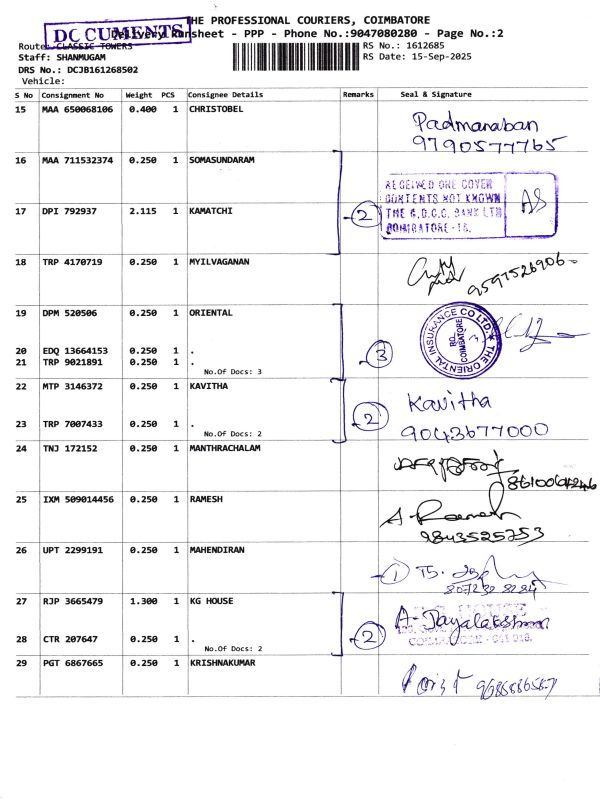 THE PROFESSIONAL COURIERS, COIMBATORE
DOCUMENTS
Delivery Runsheet - PPP - Phone No.:9047080280 - Page No.:2
Route: CLASSIC TOWERS
RS No.: 1612685
Staff: SHANMUGAM
RS Date: 15-Sep-2025
DRS No.: DCJB161268502
Vehicle:
S No Consignment No Weight PCS Consignee Details Remarks Seal & Signature
15 MAA 650068106 0.400 1 CHRISTOBEL
Padmanaban
9790577765
16 MAA 711532374 0.250 1 SOMASUNDARAM
RECEIVED ONE COVER
CONTENTS NOT KNOWN
17 DPI 792937 2.115 1 KAMATCHI 2 THE C.D.C.C. BANK LTD AS
COIMBATORE - 18.
18 TRP 4170719 0.250 1 MYILVAGANAN
9597526906
19 DPM 520506 0.250 1 ORIENTAL
THE ORIENTAL INSURANCE CO LTD.
RO COIMBATORE
20 EDQ 13664153 0.250 1 . 3
21 TRP 9021891 0.250 1 .
No.Of Docs: 3
22 MTP 3146372 0.250 1 KAVITHA
Kavitha
2
23 TRP 7007433 0.250 1 . 9043677000
No.Of Docs: 2
24 TNJ 172152 0.250 1 MANTHRACHALAM
25 IXM 509014456 0.250 1 RAMESH
A. Ramesh
9843525753
26 UPT 2299191 0.250 1 MAHENDIRAN
1
27 RJP 3665479 1.300 1 KG HOUSE
A. Jayalakshmi
28 CTR 207647 0.250 1 . 2
No.Of Docs: 2
29 PGT 6867665 0.250 1 KRISHNAKUMAR